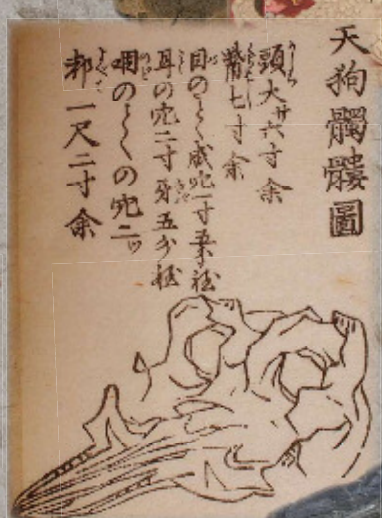 天狗髑髏圖
頭大サ六寸余
嘴七寸余
目の穴一寸
耳の穴二寸牙五分
咽のの穴二ツ
都一尺二寸余